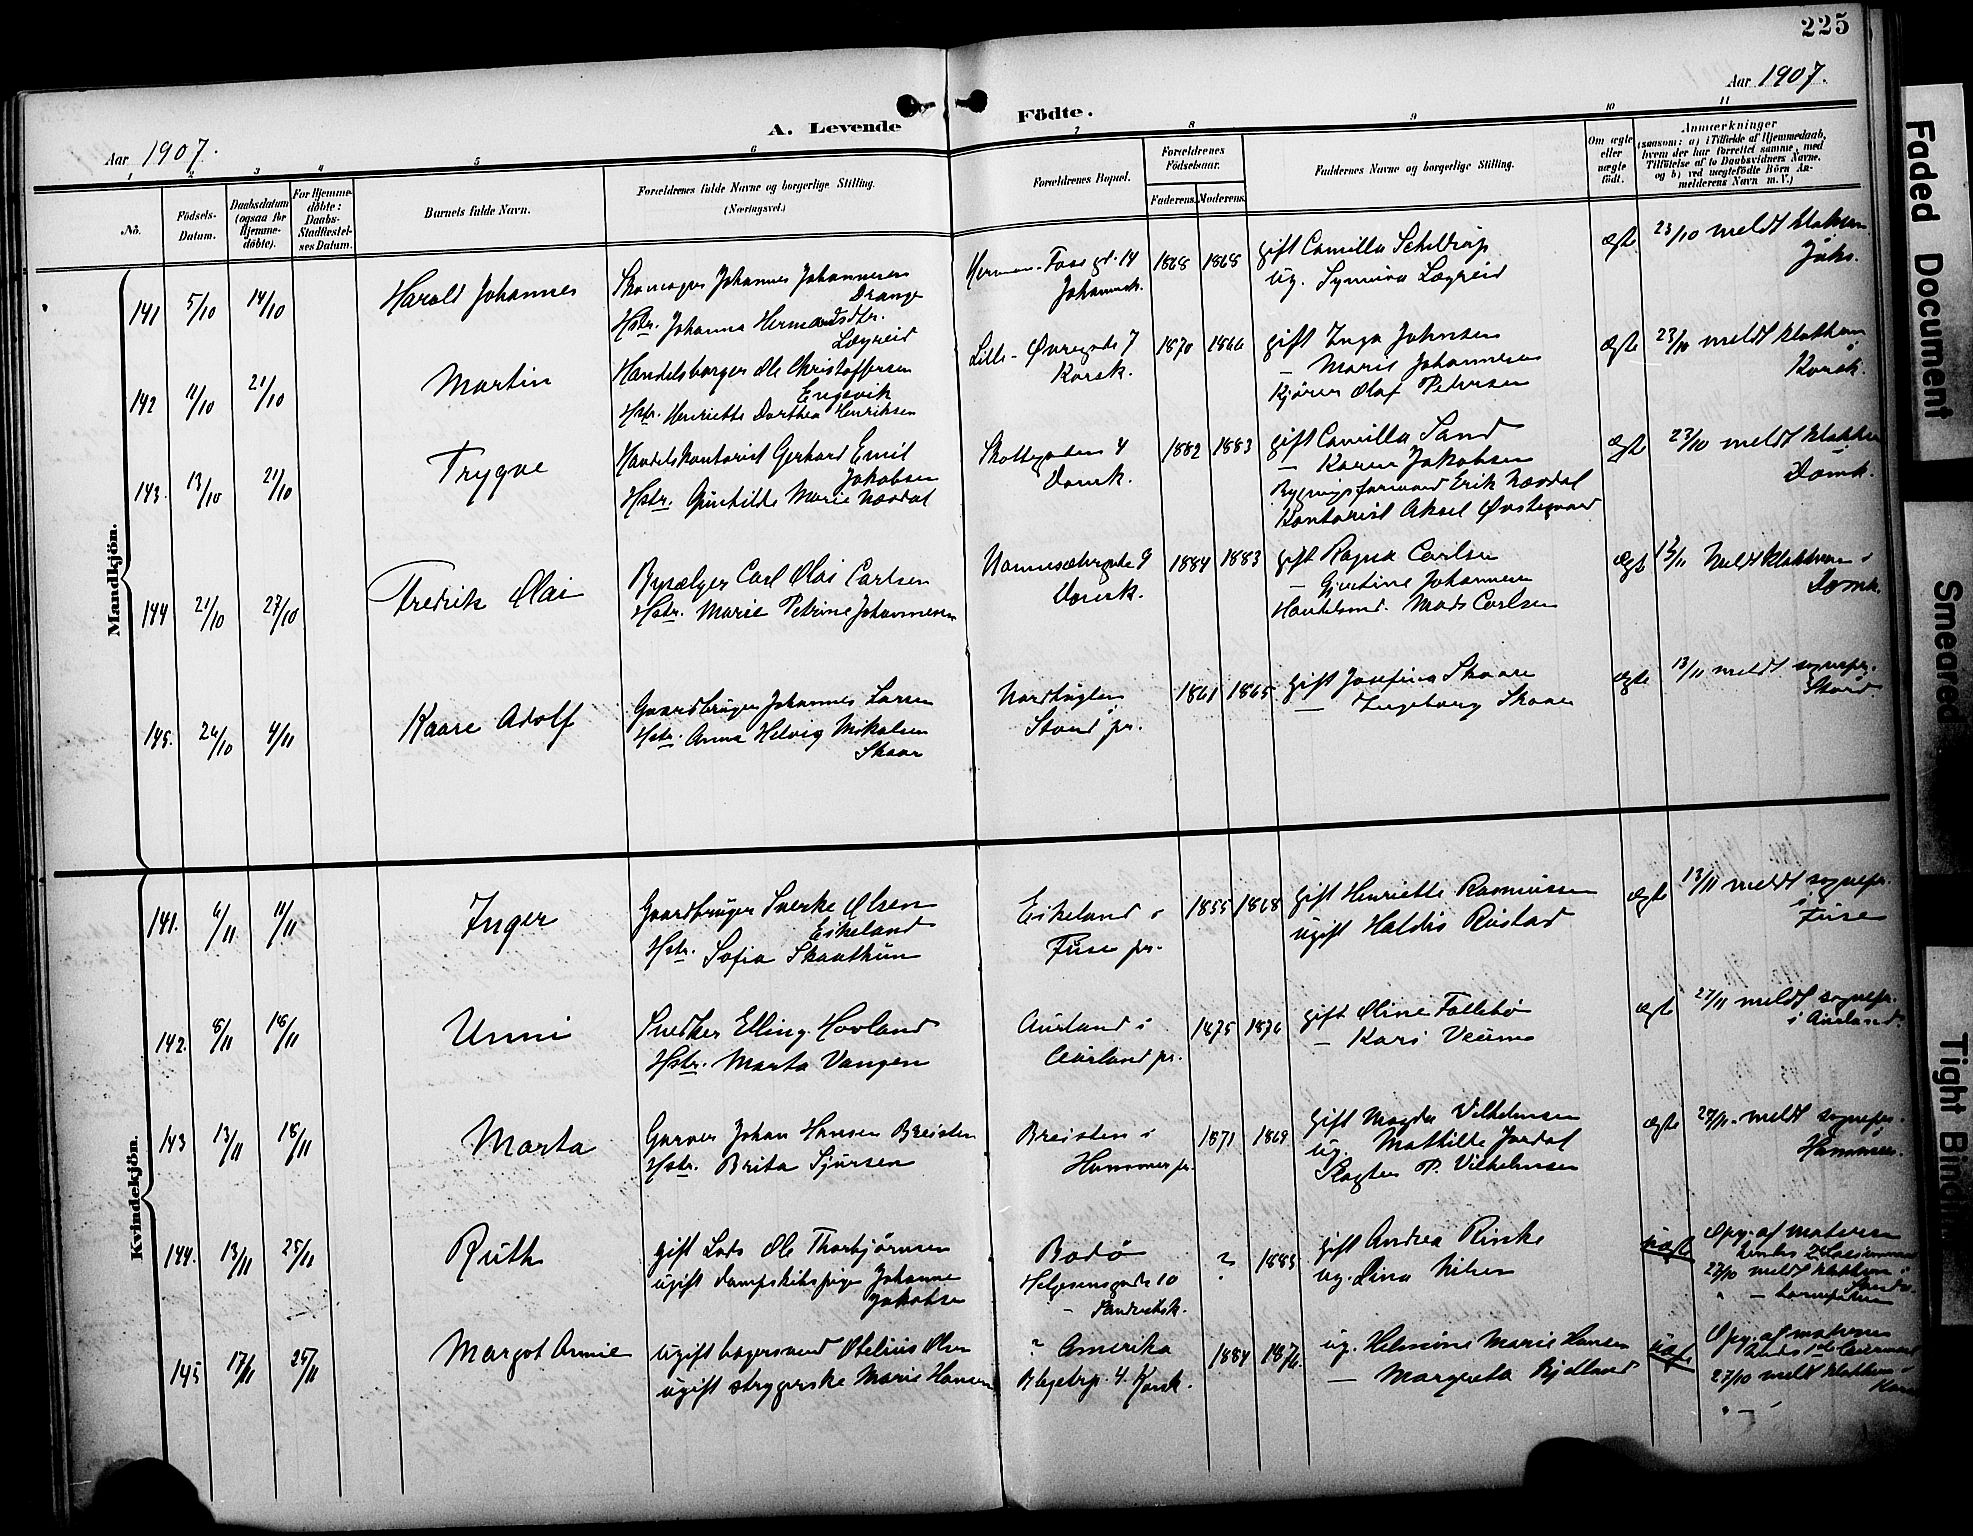 225
Aar 1907.
Aar 1907.
A. Levende Födte.
1 2 3 4 5 6 7 8 9 10 11
No.
Födsels-Datum.
Daabsdatum (ogsaa for Hjemme-döbte).
For Hjemme-döbte: Daabs-Stadfæstel-ses Datum.
Barnets fulde Navn.
Forældrenes fulde Navne og borgerlige Stilling.
(Næringsvei.)
Forældrenes Bopæl.
Forældrenes Födselsaar.
Faderens. Moderens.
Faddernes Navne og borgerlige Stilling.
Om ægte eller uægte födt.
Anmærkninger
(saasom: a) i Tilfælde af Hjemmedaab, hvem der har forrettet samme, med Tilföielse af to Daabsvidners Navne. og b) ved uægtefödte Börn An-melderens Navn m. V.)
Mandkjön.
141 5/10 14/10 Harald Johannes
Johannes Johannesen
Drange
Hstr. Johanna Hermandsdtr.
Lægreid
Herman Foss gd. 14
Johannesk.
1868 1868
gift Camilla Schiltrop
ug. Synnöva Lægreid
ægte
23/10 meldt klokkeren
Johs.
142 11/10 21/10 Martin
Handelsborger Ole Christoffersen
Engevik
Hstr. Henriette Dorthea Henriksen
Lille-Øvregade 7
Korsk.
1870 1866
gift Inga Johnsen
— Marie Johannesen
Olaf Petersen
ægte
23/10 meldt klokkeren i
Korsk.
143. 13/10 21/10 Trygve
Handelskontorist Gerhard Emil
Jakobsen
Hstr. Gunhilde Marie Næsdal
Skottegaten 4
Domk.
1882 1883
gift Camilla Sand
— Karen Jakobsen
Bygningsformand Erik Næsdal
Kontorist Aksel Øvstegaard
ægte
23/10 meldt klokkeren
Domk.
144 21/10 27/10 Fredrik Olai
Carl Olai Carlsen
Hstr. Marie Petrine Johannesen
Domk.
1884 1883
gift Ragna Carlsen
— Gjertine Johannesen
Handelsmd. Mads Carlsen
ægte
meldt klokkeren i
Domk.
145. 26/10 4/11 Kaare Adolf
Gaardbruger Johannes Larsen
Hstr. Anna Helvig Mikalsen
Skaar
Nordhuglen
Stord pr.
1861 1865
gift Josefina Skaare
— Ingeborg Skaar
ægte
13/11 meldt sognepr.
Stord
Kvindekjön.
141. 6/11 11/11 Inger
Gaardbruger Sverke Olsen
Eikeland
Hstr. Sofia Skaathun
Eikeland i
Fuse pr.
1855 1868
gift Henriette Rasmussen
ugift Haldis Rustad
ægte
13/11 meldt sognepr.
i
Fuse
142. 8/11 18/11 Unni
Snedker Elling Hovland
Hstr. Marta Vangen
Aurland i
Aurland pr.
1875 1876
gift Oline Fallebø
— Kari Veum
ægte
27/11 meldt sognepr.
i Aurland.
143 13/11 18/11 Marta
Garver Johan Hansen Breisten
Hstr. Brita Sjursen
Breisten i
Hammer pr.
1871 1869
gift Magda Vilhelmsen
ug. Mathilde Jordal
Slagter P. Vilhelmsen
ægte
27/11. meldt sognepr.
Hammer.
144. 13/11 25/11 Ruth
gift Lods Ole Thorbjørnsen
ugift dampskibspige Johanne
Jakobsen
Bodø
Helgesensgade 10
— Sandviksk.
? 1883
gift Andrea Rinke
ug. Lina Nilsen
uægte
Opg. af moderen
27/10 meldt klokkeren i
Sandv.
145 17/11 25/11 Margot Annie
ugift bagersvend Otelius Olsen
ugift strygerske Marie Hansen
? Amerika
4. Korsk.
1884 1876.
ug. Helmine Marie Hansen
— Margreta
uægte
Opg. af moderen
27/10 meldt klokkeren i
Kors
Faded Document
Smeared
Tight Binding